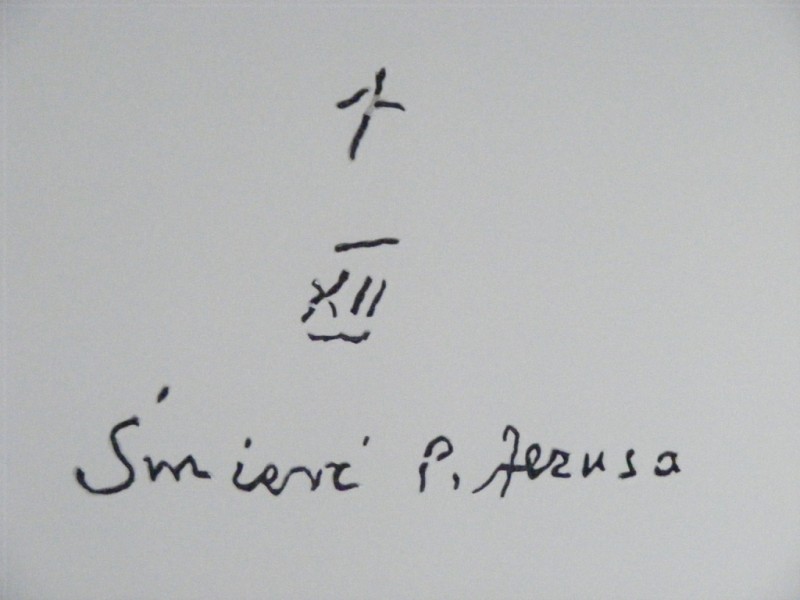 XII
Śmierć P. Jezusa